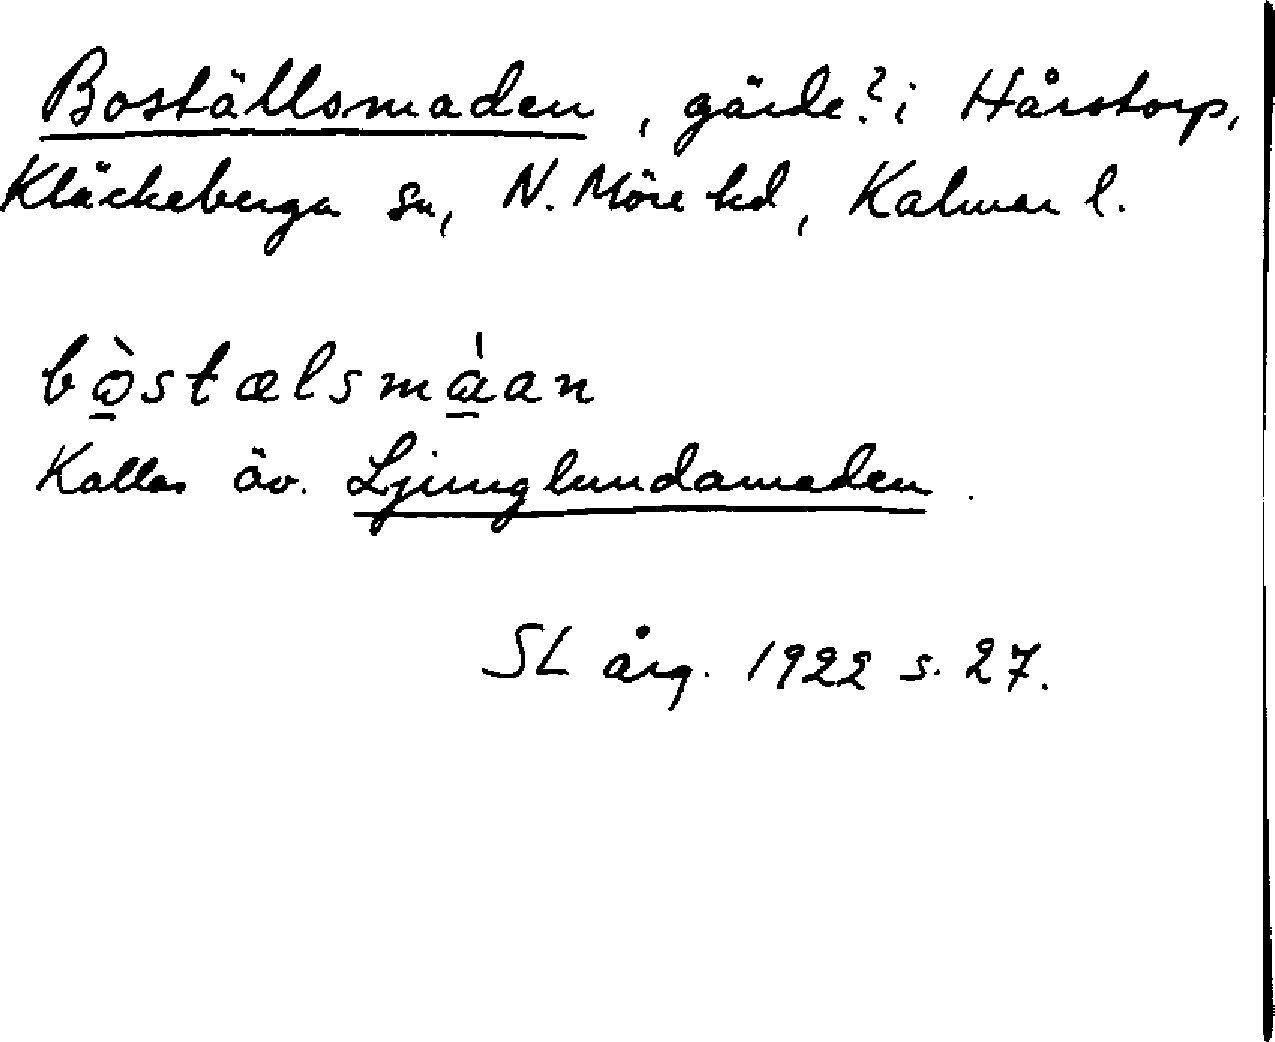 Boställsmaden, gärde? i Hårstorp,
Kläckeberga sn, N. Möre hd, Kalmar l.
bò̲stælsma̲̍an
Kallas äv. Ljunglundamaden.
SL årg. 1922 s. 27.